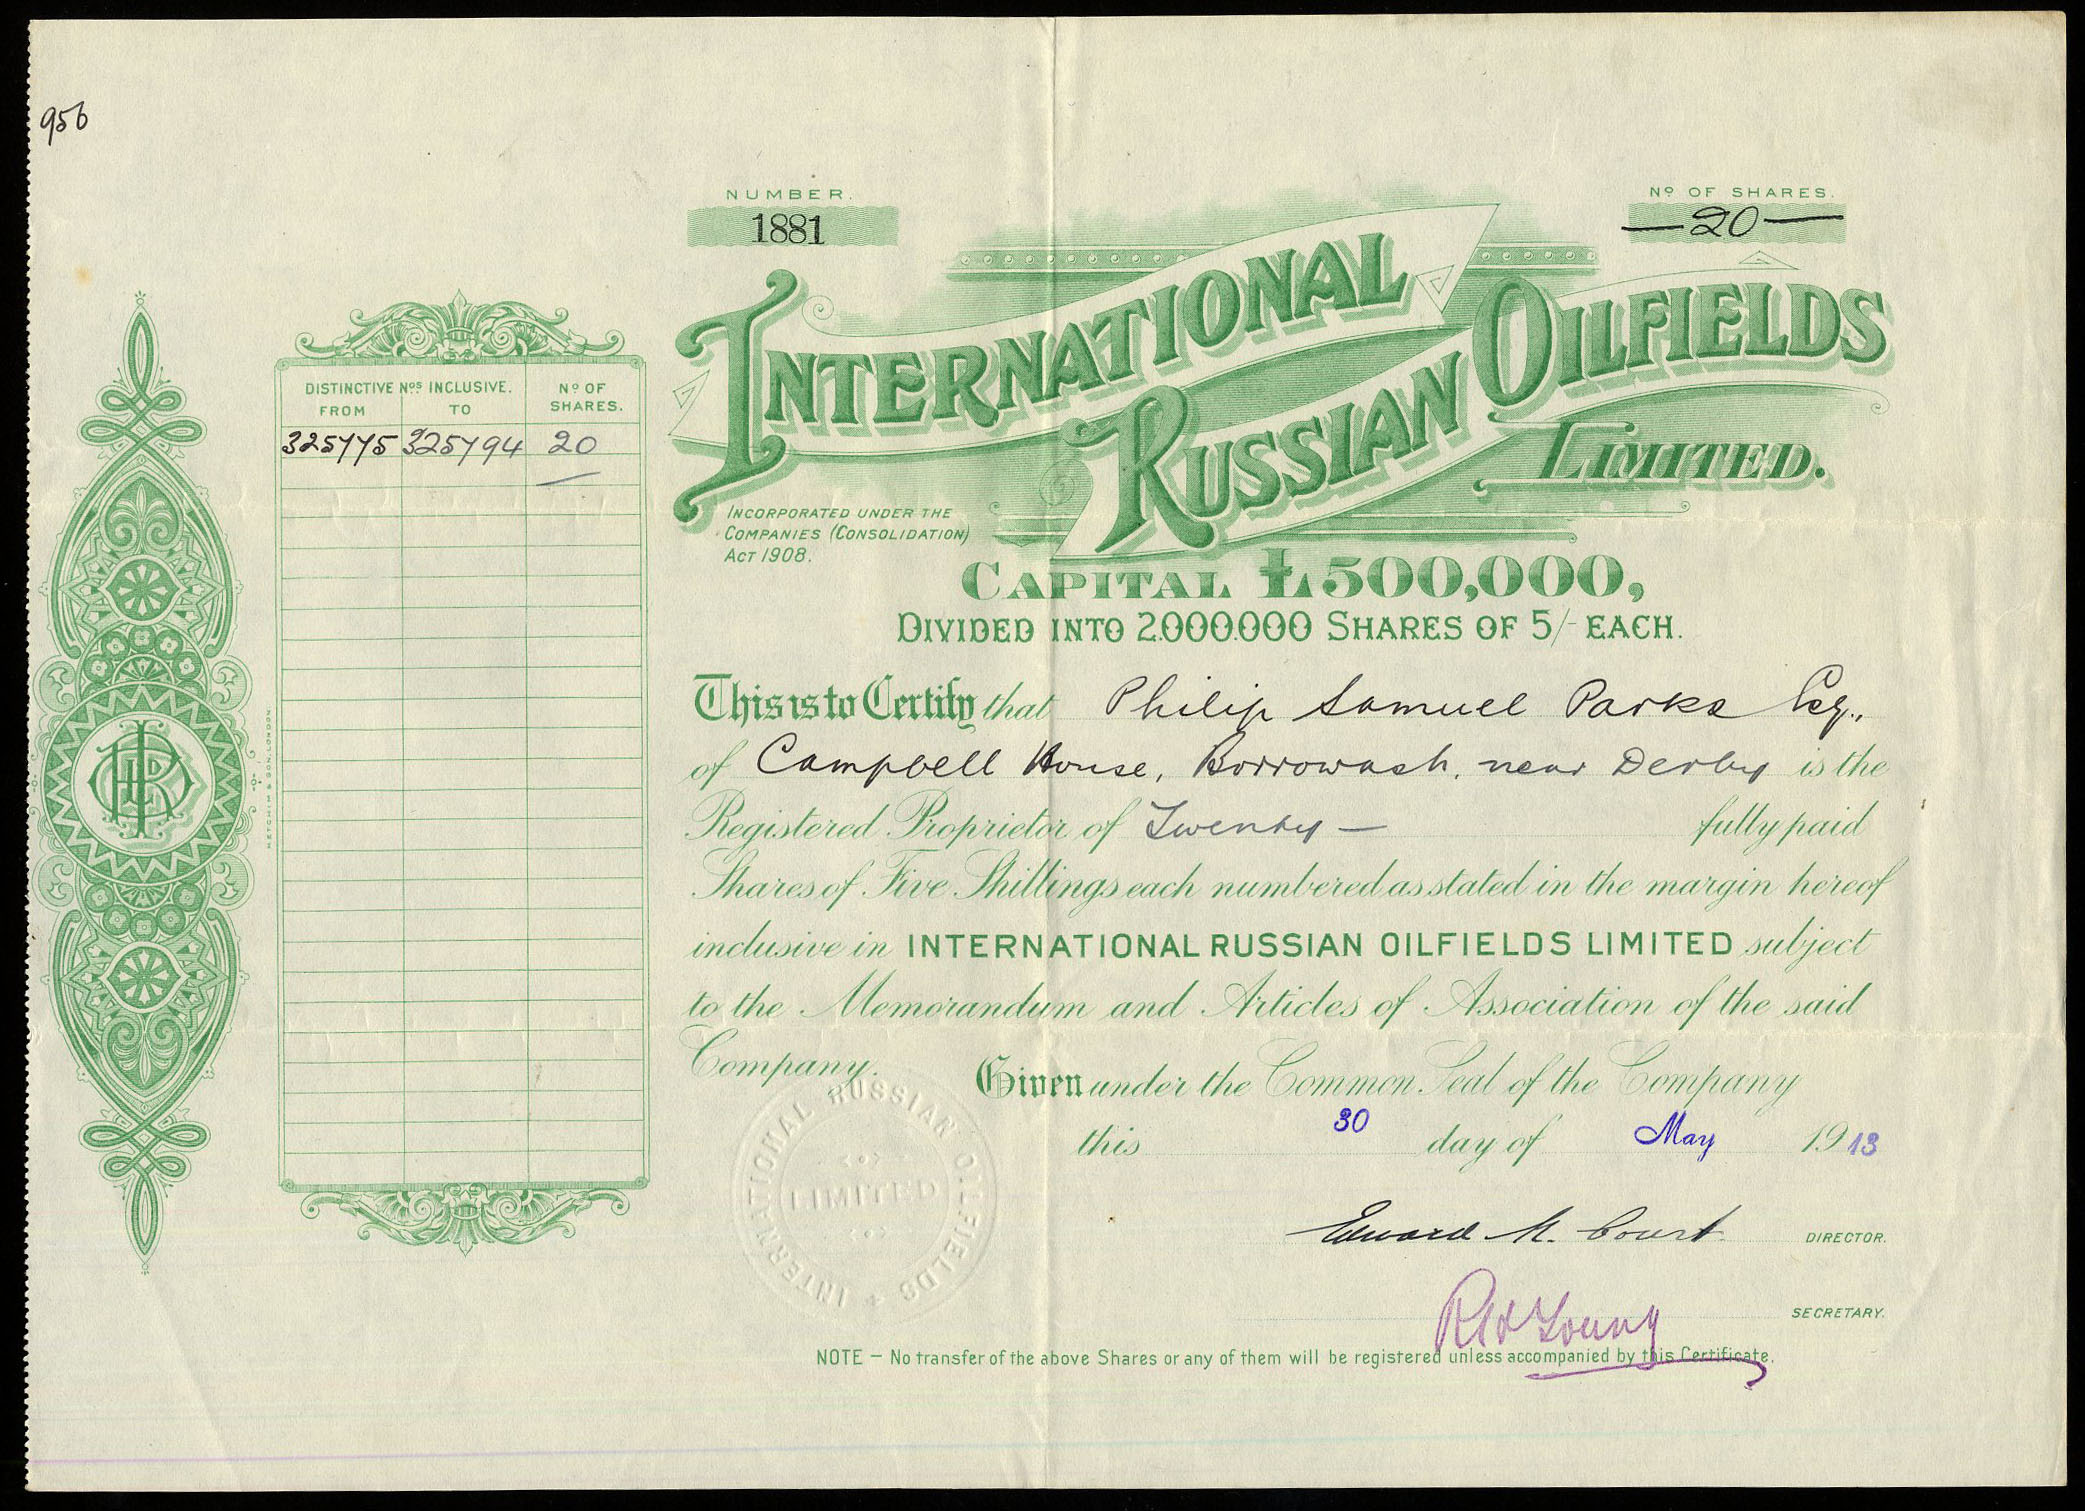 956
NUMBER.
1881
Nº OF SHARES.
—20—
INTERNATIONAL
RUSSIAN OILFIELDS
LIMITED.
INCORPORATED UNDER THE
COMPANIES (CONSOLIDATION)
ACT 1908.
CAPITAL £500,000,
DIVIDED INTO 2.000.000 SHARES OF 5/- EACH.
DISTINCTIVE Nºs INCLUSIVE. Nº OF
FROM TO SHARES.
325775 325794 20
METCHIM & SON, LONDON
This is to Certify that Philip Samuel Parks Esq.,
of Campbell House, Borrowash, near Derby is the
Registered Proprietor of Twenty — fully paid
Shares of Five Shillings each numbered as stated in the margin hereof
inclusive in INTERNATIONAL RUSSIAN OILFIELDS LIMITED subject
to the Memorandum and Articles of Association of the said
Company.
Given under the Common Seal of the Company
this 30 day of May 1913
INTERNATIONAL RUSSIAN OILFIELDS
LIMITED
Edward M. Court DIRECTOR.
Young SECRETARY.
NOTE — No transfer of the above Shares or any of them will be registered unless accompanied by this Certificate.